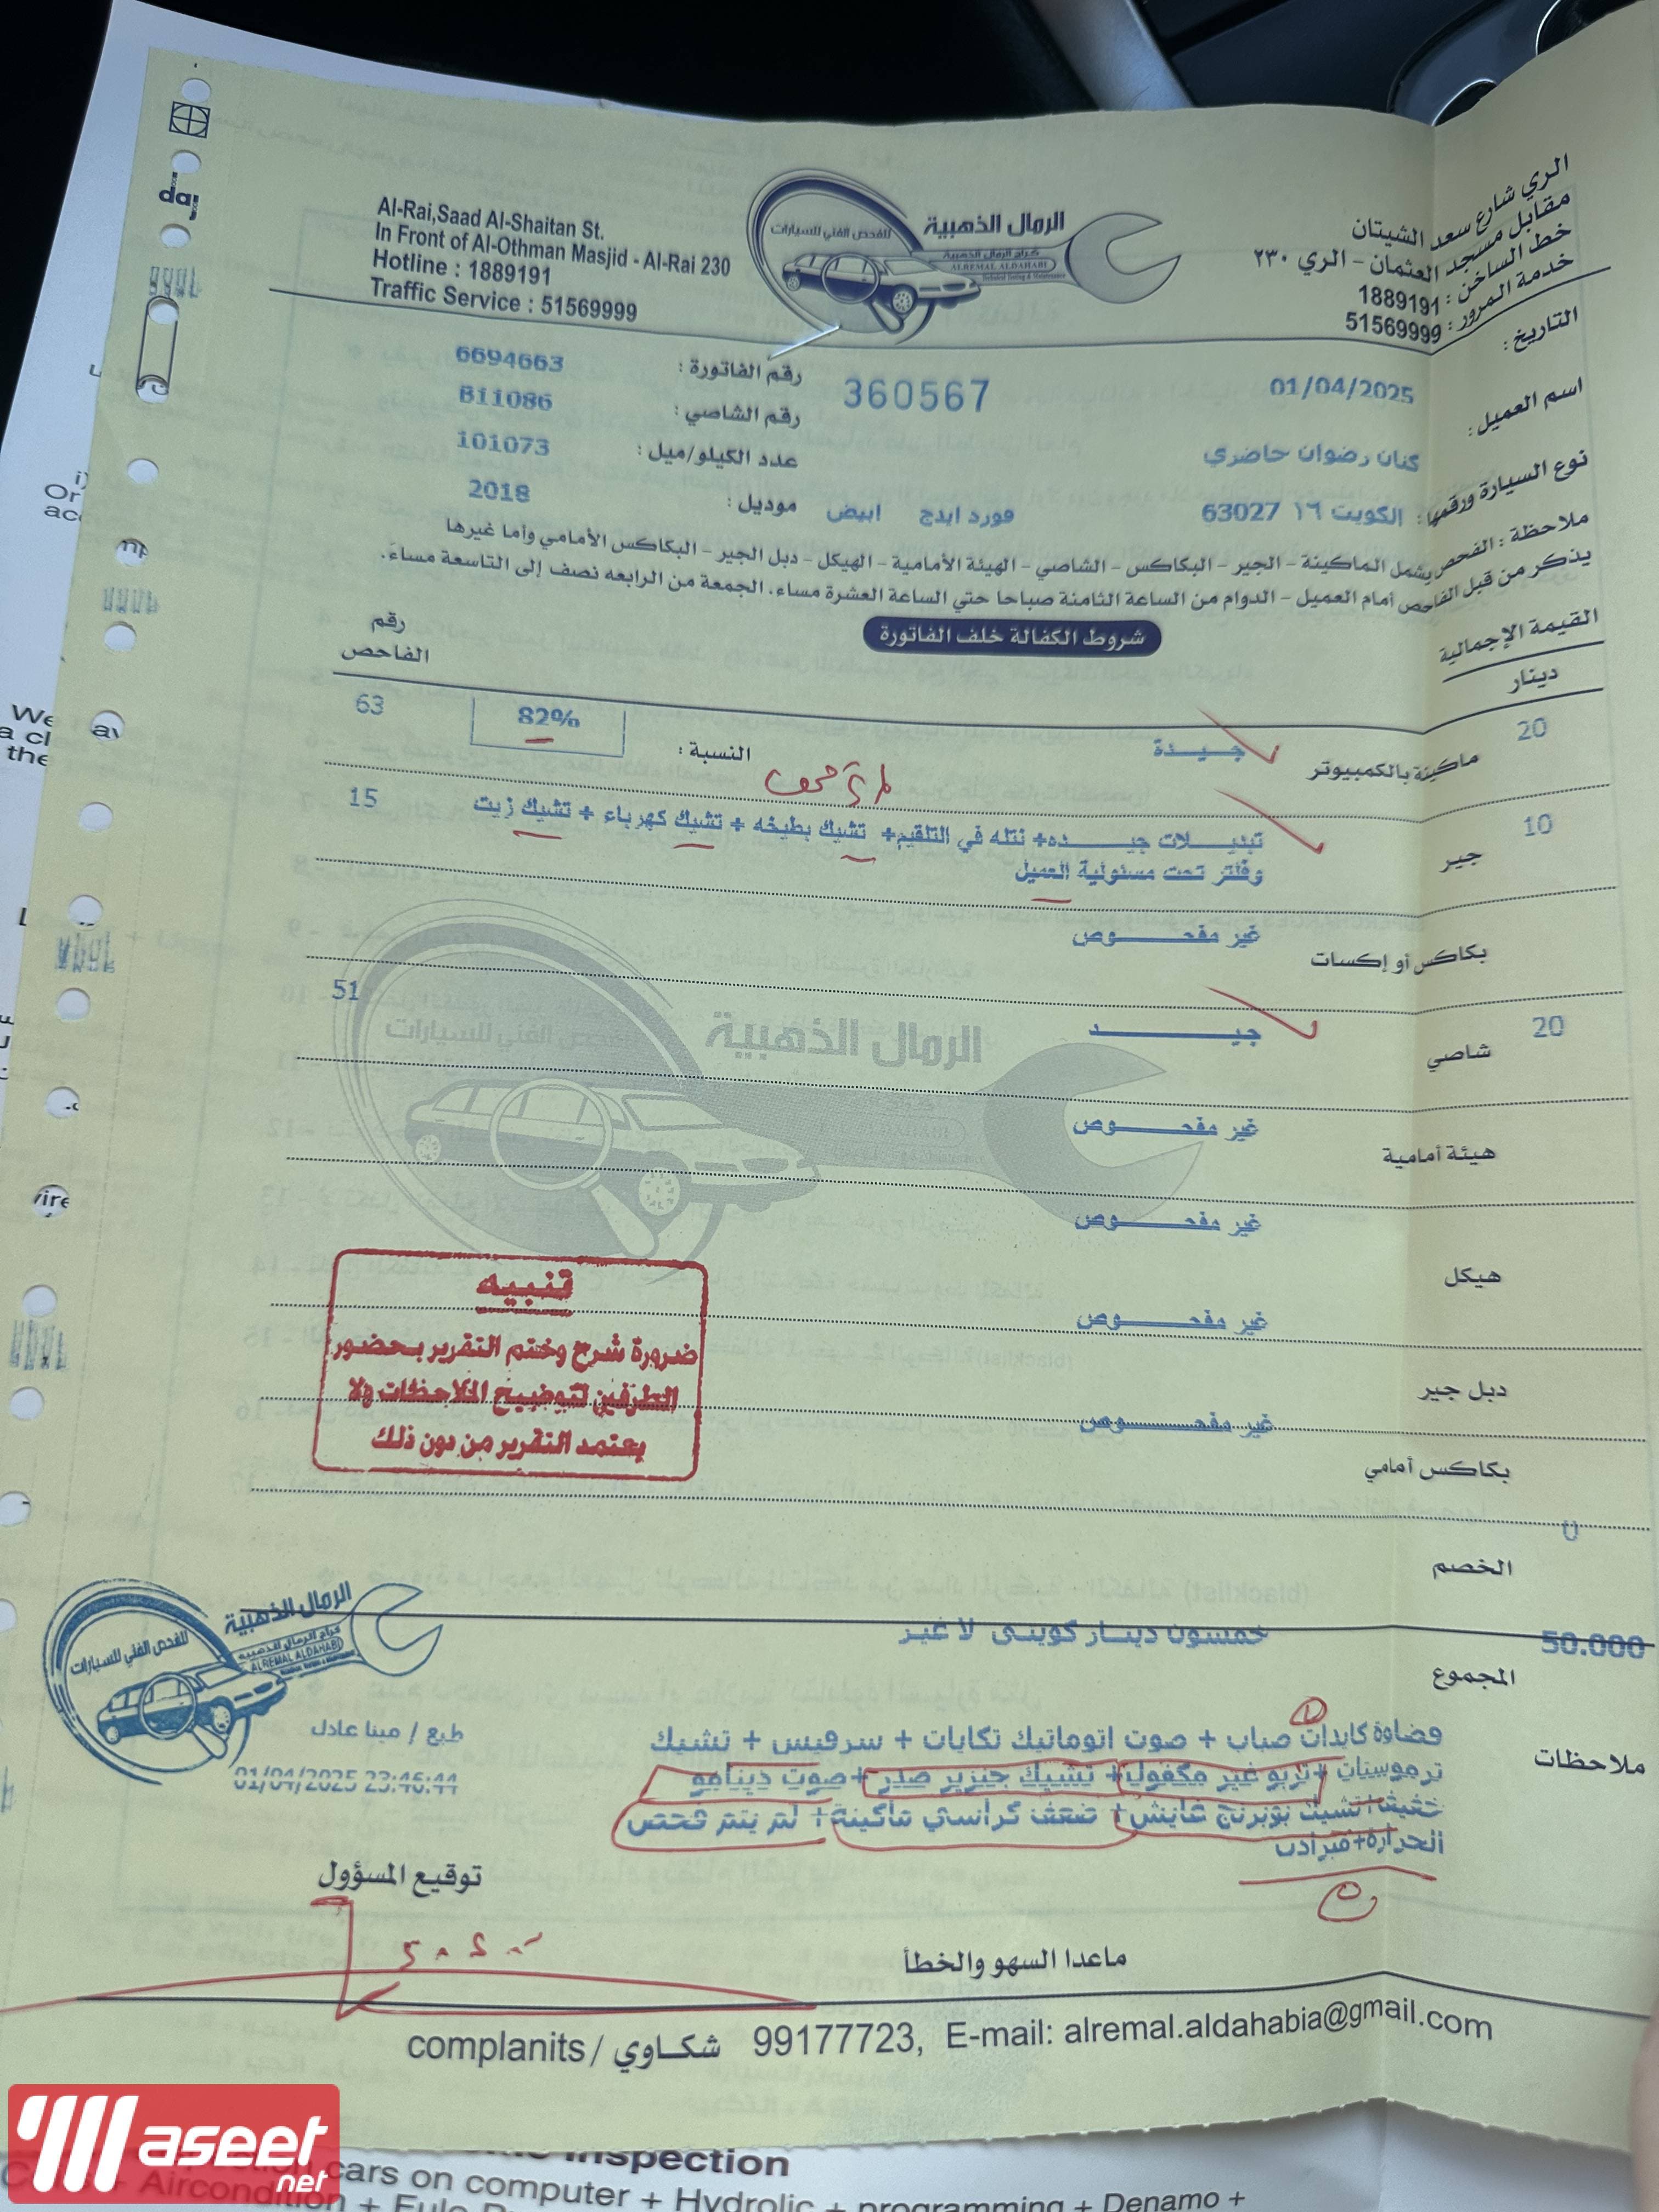 Al-Rai,Saad Al-Shaitan St.
In Front of Al-Othman Masjid - Al-Rai 230
Hotline : 1889191
Traffic Service : 51569999
الرمال الذهبية
للفحص الفني للسيارات
كراج الرمال الذهبية
ALREMAL ALDAHABI
الري شارع سعد الشيتان
مقابل مسجد العثمان - الري ٢٣٠
خط الساخن : 1889191
خدمة المرور : 51569999
التاريخ : 01/04/2025
360567
رقم الفاتورة : 6694663
رقم الشاصي : B11086
اسم العميل : كنان رضوان حاضري
عدد الكيلو/ميل : 101073
نوع السيارة ورقمها : الكويت ١٦ 63027 فورد ايدج ابيض
موديل : 2018
ملاحظة : الفحص يشمل الماكينة - الجير - البكاكس - الشاصي - الهيئة الأمامية - الهيكل - دبل الجير - البكاكس الأمامي وأما غيرها
يذكر من قبل الفاحص أمام العميل - الدوام من الساعة الثامنة صباحا حتي الساعة العشرة مساء، الجمعة من الرابعه نصف إلى التاسعة مساءً.
شروط الكفالة خلف الفاتورة
القيمة الإجمالية
دينار
رقم
الفاحص
20 ماكينة بالكمبيوتر جيدة النسبة : 82% 63
10 جير تبديلات جيده+ نتله في التلقيم+ تشيك بطيخه + تشيك كهرباء + تشيك زيت 15
وفلتر تحت مسئولية العميل
بكاكس أو إكسات غير مفحوص
20 شاصي جيد 51
الرمال الذهبية
الفحص الفني للسيارات
هيئة أمامية غير مفحوص
هيكل غير مفحوص
دبل جير غير مفحوص
بكاكس أمامي غير مفحوص
تنبيه
ضرورة شرح وختم التقرير بحضور
الطرفين لتوضيح الملاحظات ولا
يعتمد التقرير من دون ذلك
الخصم 0
المجموع 50.000 خمسون دينار كويتى لا غير
الرمال الذهبية
للفحص الفني للسيارات
كراج الرمال الذهبية
ALREMAL ALDAHABI
طبع / مينا عادل
01/04/2025 23:46:44
ملاحظات
فضاوة كايدات صباب + صوت اتوماتيك تكايات + سرفيس + تشيك
ترموستات +تربو غير مكفول+ تشييك جنزير صدر +صوت دينامو
خفيف+تشيك بوبرنج غايش+ ضعف كراسي ماكينة+ لم يتم فحص
الحرارة+مبرادت
توقيع المسؤول
ماعدا السهو والخطأ
complanits / شكاوي 99177723, E-mail: alremal.aldahabia@gmail.com
aseet
.net
Inspection
cars on computer + Hydrolic + programming + Denamo +
Aircondition +